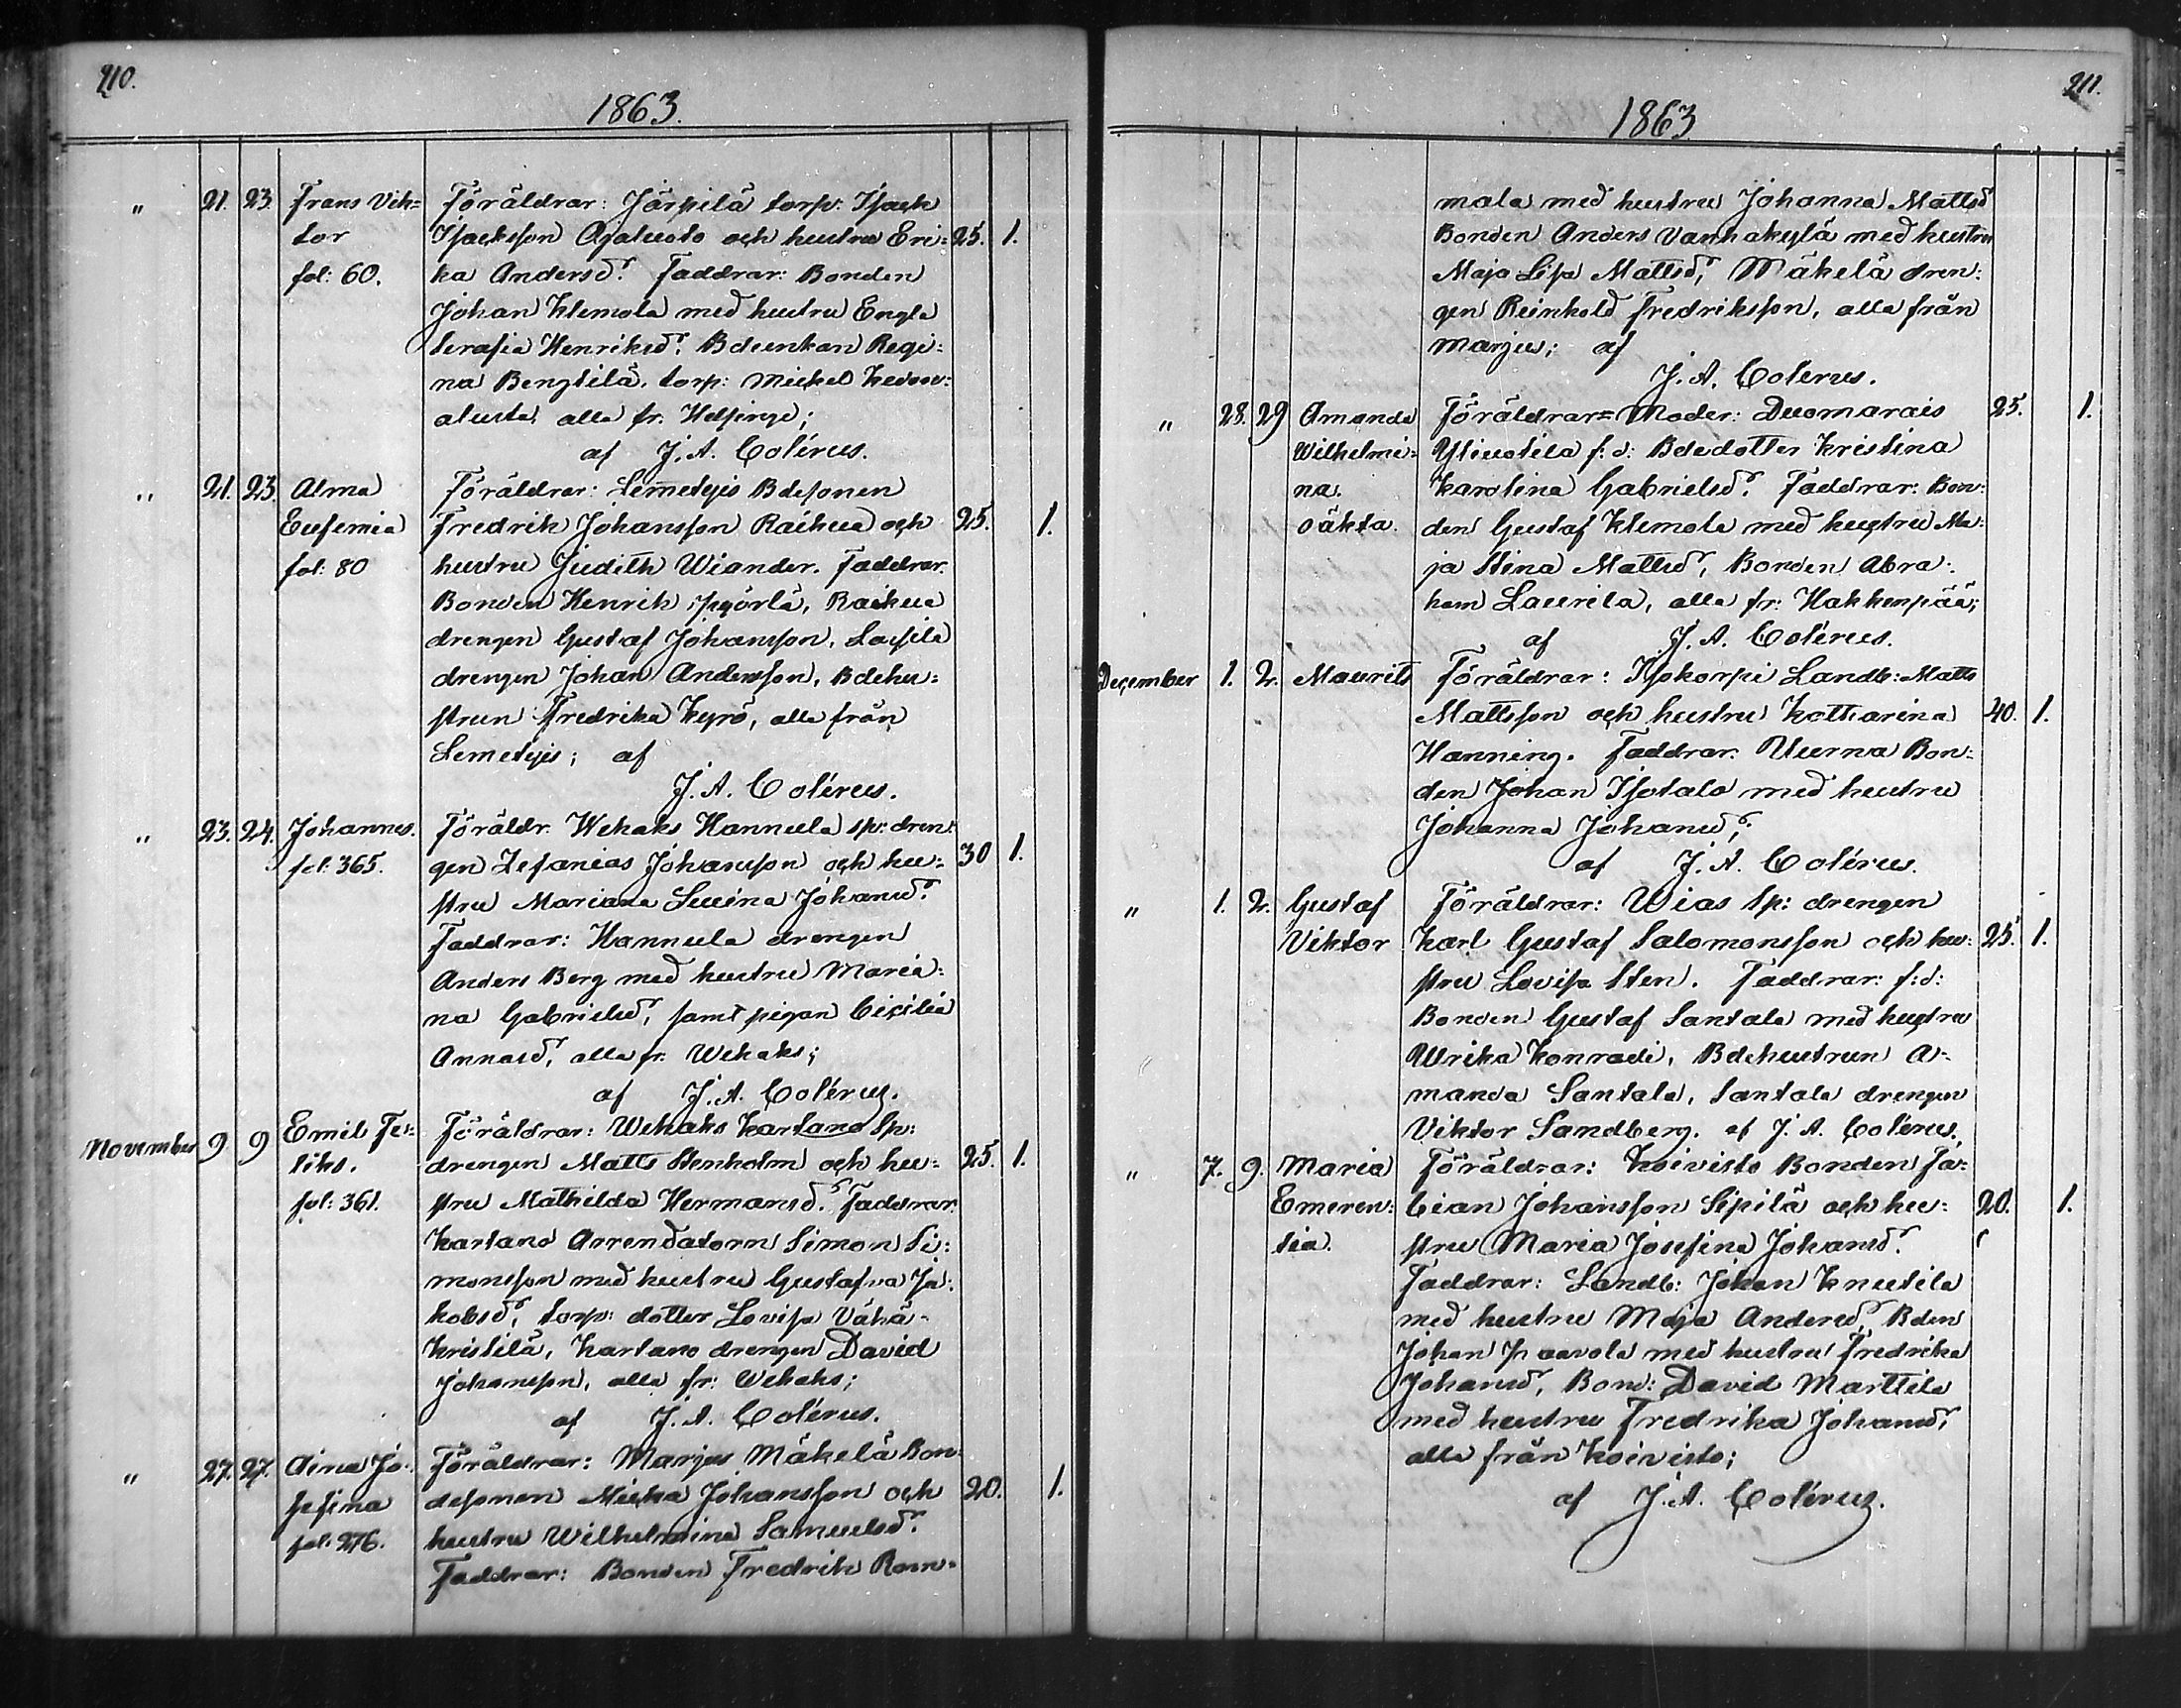 210.
1863.
" 21. 23 Frans Vik= Föräldrar: Järpilä torp: Isack
tor Isacksson Ojaluoto och hustru Eri= 25. 1.
fol: 60. ka Andersd:r Faddrar: Bonden
Johan Klemola med hustru Engla
Serafia Henriksd:r Bdeenkan Regi=
na Bengtilä, torp: Mickel
alusta, alla fr. Helsinge;
af J. A. Colérus.
" 21. 23 Alma Föräldrar: Lemetyis Bdesonen
Eufemia Fredrik Johansson Raikua och 25. 1.
fol: 80 hustru Judith Wiander. Faddrar.
Bonden Henrik Pyörlä, Raikua
drengen Gustaf Johansson, Lassila
drengen Johan Andersson, Bdehu=
strun Fredrika Kyrö, alla från
Lemetyis; af
J. A. Colérus.
" 23. 24. Johannes. Föräldr. Wehaks Hannula sp: dren=
fol: 365. gen Zefanias Johansson och hu= 30 1.
stru Mariana Lucina Johansd:r
Faddrar: Hannula drengen
Anders Berg med hustru Maria=
na Gabrielsd:r, samt pigan Cicilia
Annasd:r, alla fr. Wehaks;
af J. A. Colérus.
November 9. 9 Emil Fe= Föräldrar: Wehaks Kartano Sp:
liks. drengen Matts Stenholm och hu= 25. 1.
fol: 361. stru Mathilda Hermansd:r Faddrar.
Kartano Arrendatorn Simon Si=
monsson med hustru Gustafva Ja=
kobsd:r, torp: dotter Lovisa Vähä-
Kristilä, Kartano drengen David
Johansson, alla fr: Wehaks;
af J. A. Colérus.
" 27. 27. Aina Jo= Föräldrar: Marjus Mäkelä Bon=
sefina desonen Micka Johansson och 20. 1.
fol: 276. hustru Wilhelmina Samuelsd:r
Faddrar: Bonden Fredrik Rom=
211.
1863
mala med hustru Johanna Mattsd:r
Bonden Anders Vanhakylä med hustru
Maja Lisa Mattsd:r, Mäkelä dren=
gen Reinhold Fredriksson, alla från
Marjus; af
J. A. Colerus.
" 28. 29 Amanda Föräldrar= Moder: Duomarais 25. 1.
Wilhelmi= Yliuotila f: d: Bdedotter Kristina
na. Karolina Gabrielsd:r Faddrar: Bon=
oäkta. den Gustaf Klemola med hustru Ma=
ja Stina Mattsd:r, Bonden Abra=
ham Laurila, alla fr: Hakkenpää;
af J. A. Colérus.
December 1. 2. Maurits Föräldrar: Isokorpi Landb: Matts
Mattsson och hustru Katharina 40. 1.
Hanning. Faddrar. Uurna Bon=
den Johan Isotalo med hustru
Johanna Johansd:r;
af J. A. Colérus.
" 1. 2. Gustaf Föräldrar: Wias Sp: drengen
Viktor Karl Gustaf Salomonsson och hu= 25. 1.
stru Lovisa Sten. Faddrar: f: d:
Bonden Gustaf Santala med hustru
Ulrika Konradi, Bdehustrun A=
manda Santala, Santala drengen
Viktor Sandberg. af J. A. Colérus.
" 7. 9. Maria Föräldrar: Koivisto Bonden Fa=
Emeren= bian Johansson Sipilä och hu= 20. 1.
tia. stru Maria Josefina Johansd:r
Faddrar: Landb: Johan Knuutila
med hustru Maja Andersd:r, Bden
Johan Paavola med hustru Fredrika
Johansd:r, Bond: David Marttila
med hustru Fredrika Johansd:r,
alla från Koivisto;
af J. A. Colérus.